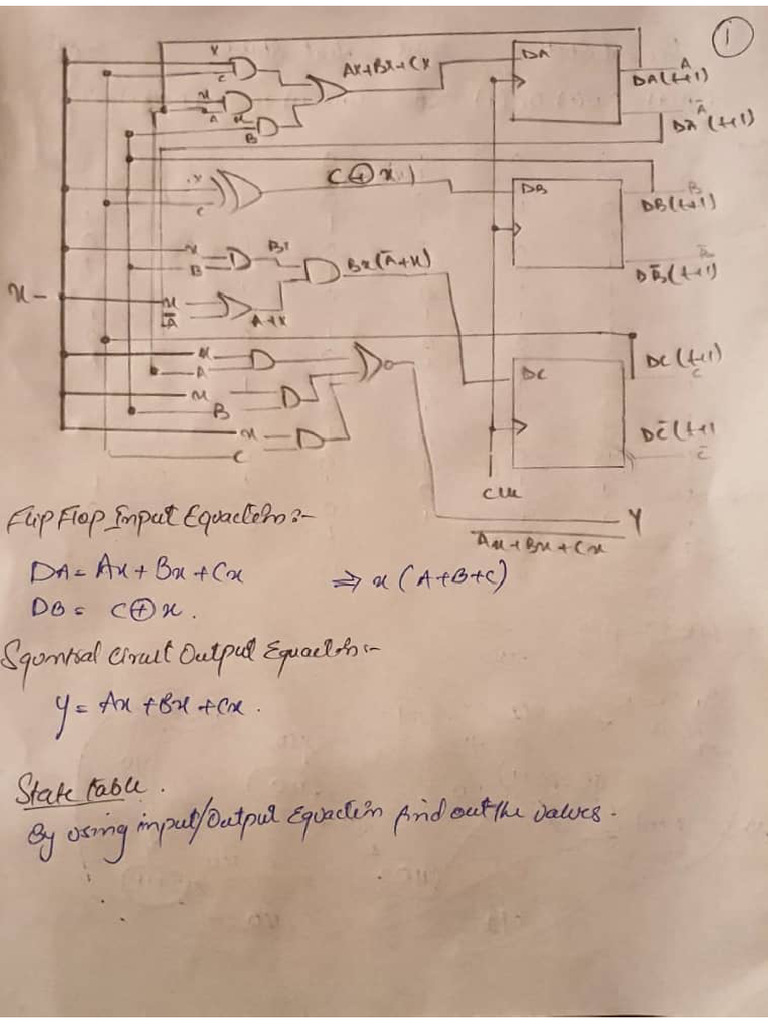 1
x
C
x
A
x
B
Ax+Bx+Cx
DA
A
DA(t+1)
Ā
DĀ(t+1)
x
C
C⊕x
DB
B
DB(t+1)
DB̄(t+1)
x
B
Bx
Bx(Ā+x)
x -
x
Ā
A+x
x
A
DC
DC(t+1)
C
x
B
x
C
DC̄(t+1
C̄
CLK
Y
\overline{Ax+Bx+Cx}
Flip Flop Input Equaction:-
DA = Ax + Bx + Cx ⇒ x(A+B+C)
DB = C⊕x.
Squntial Circuit Output Equaction:-
Y = Ax + Bx + Cx.
State table.
By using input/Output Equaction find out the values.